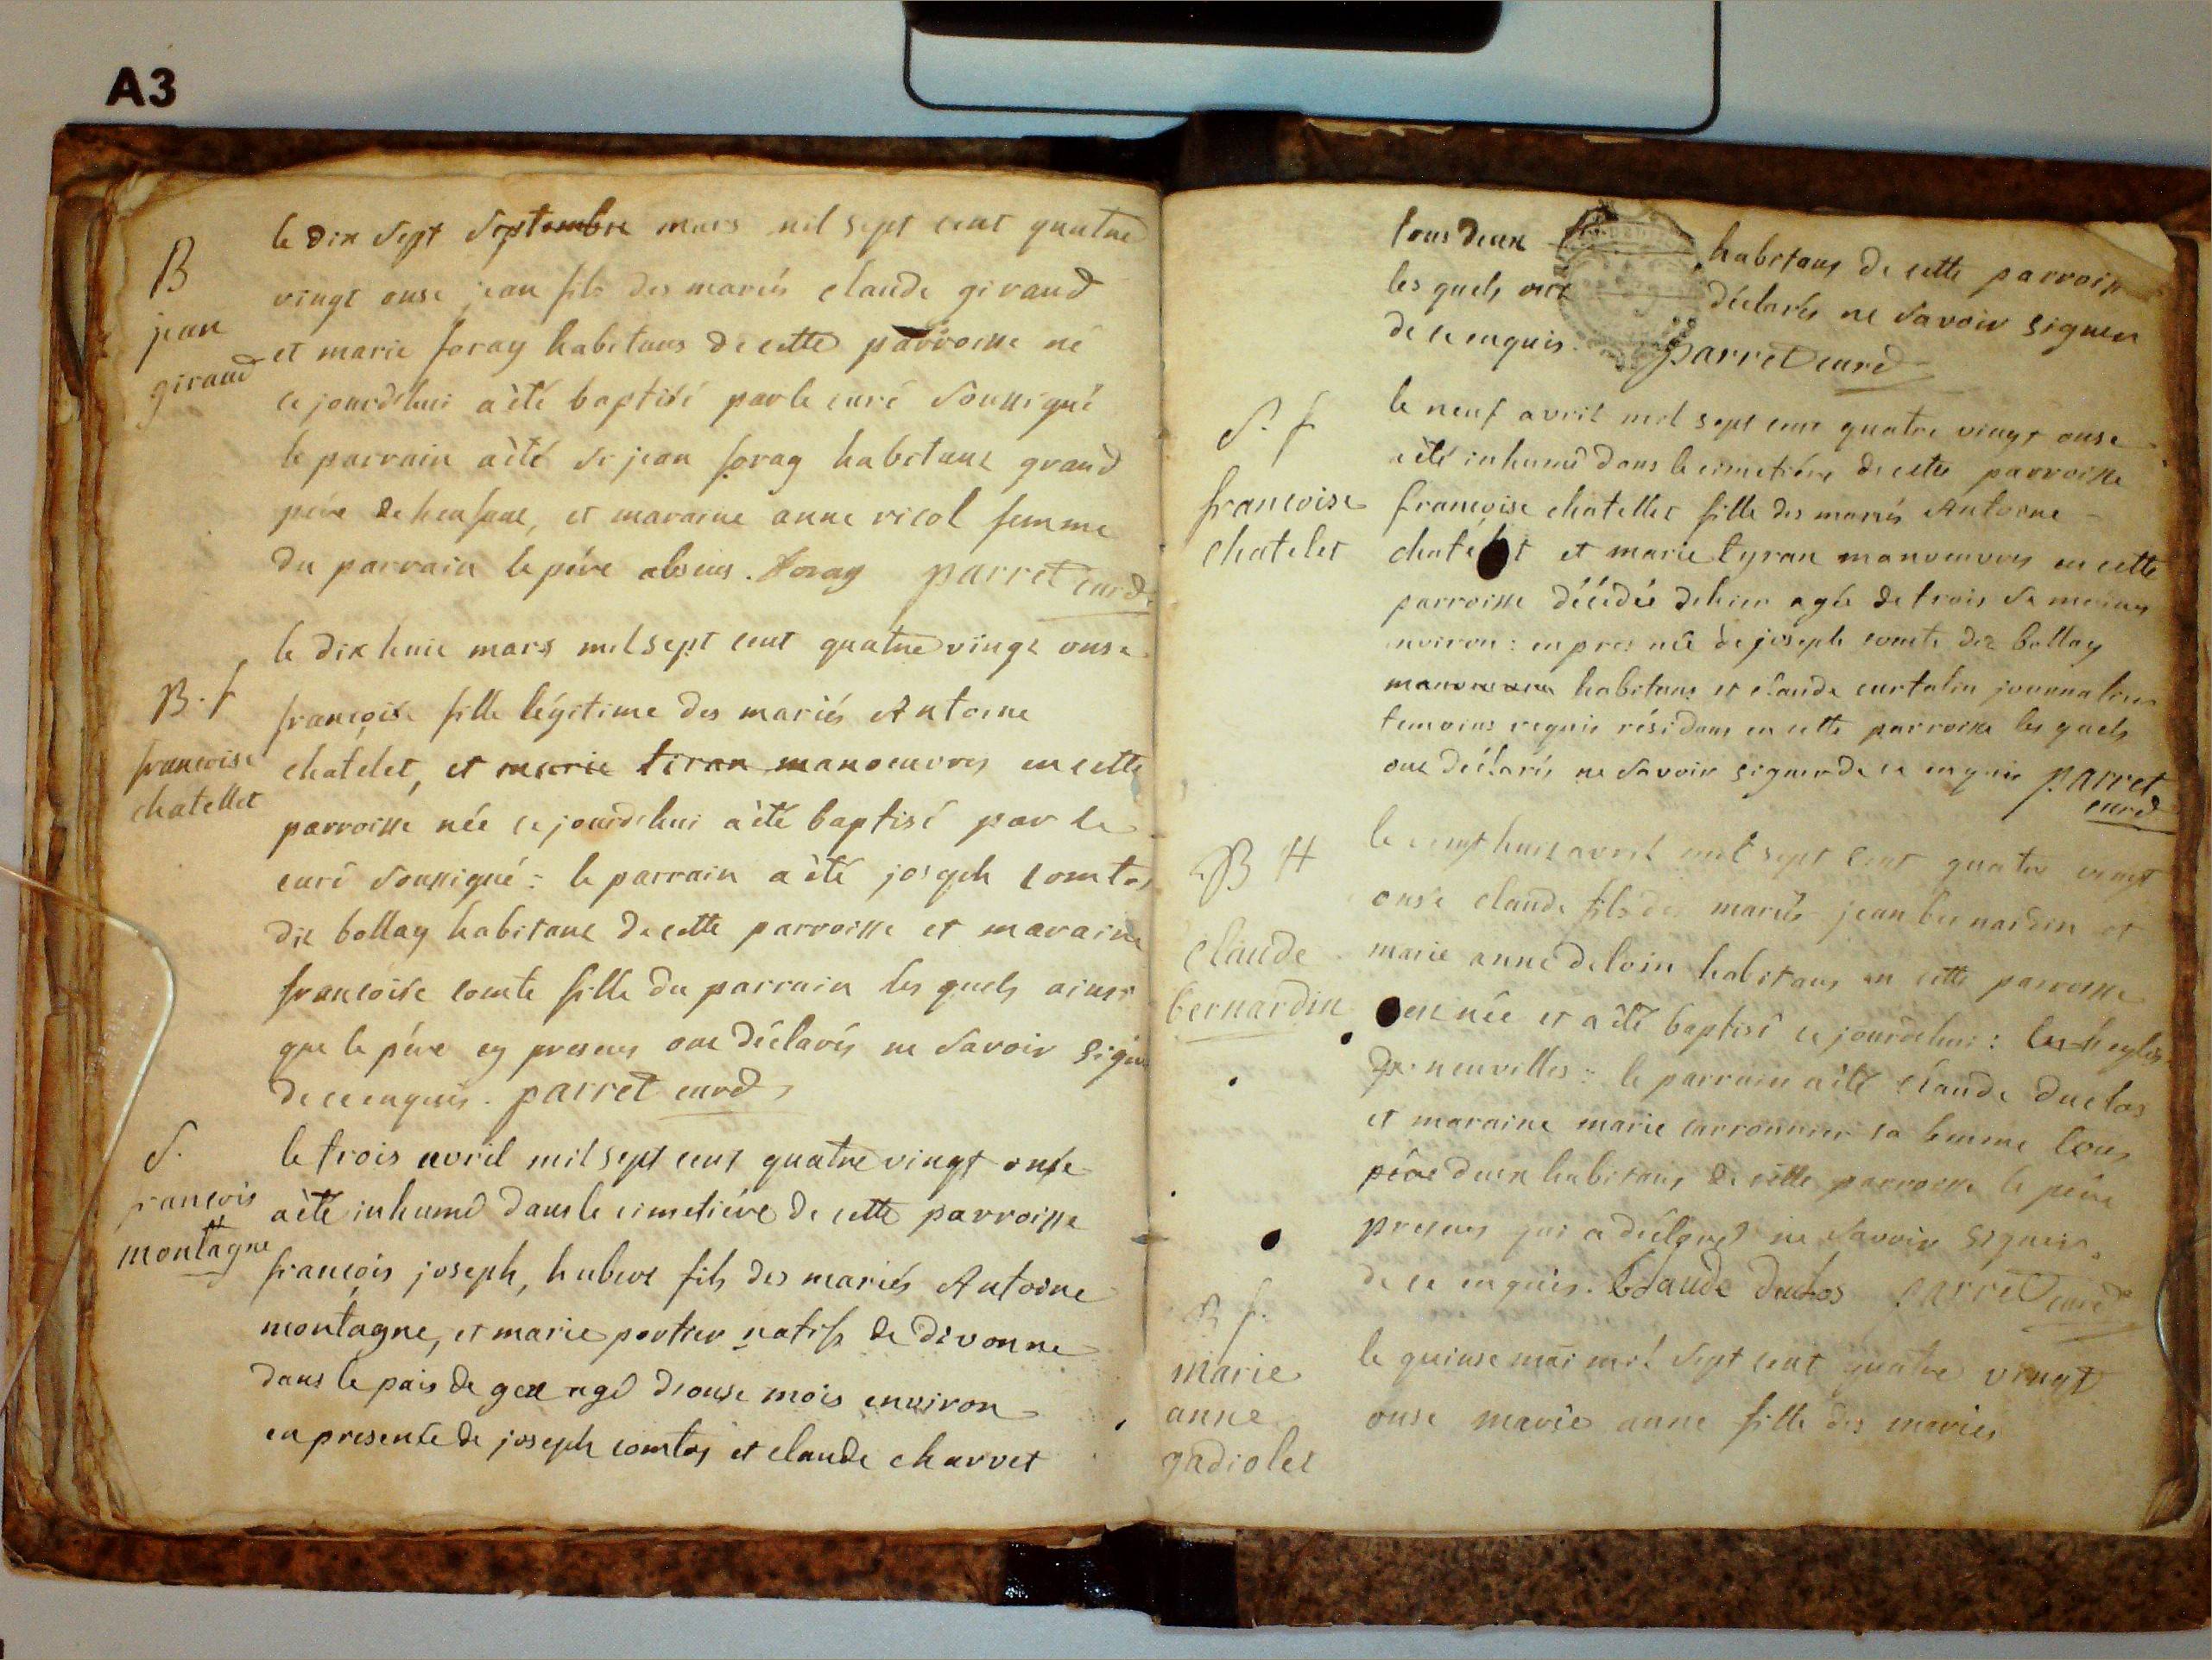 A3
B
jean
giraud
le dix sept septembre mars mil sept cent quatre
vingt onse jean fils des mariés claude giraud
et marie foray habitans de cette parroisse né
ce jourdhui a èté baptisé par le curé soussigné
le parrain a èté sr jean foray habitant grand
pére de lenfant, et maraine anne ricol femme
du parrain le pére absens. foray parret curé
B. f
francoise
chatellet
le dix huit mars mil sept cent quatre vingt onse
françoise fille légitime des mariés Antoine
chatelet, et marie tiran manoeuvres en cette
parroisse née ce jourdhui a èté baptisé par le
curé soussigné : le parrain a èté joseph comtes
dit bollay habitant de cette parroisse et maraine
francoise comte fille du parrain les quels ainsi
que le pére cy presens ont déclarés ne savoir signer
de ce enquis. parret curé
S.
francois
montagne
le trois avril mil sept cent quatre vingt onse
a èté inhumé dans le cimetiére de cette parroisse
françois joseph, hubert fils des mariés Antoine
montagne, et marie portier natifs de divonne
dans le pais de gex agé donse mois environ
en presence de joseph comtes et claude charvet
tous deux habitans de cette parroisse
les quels ont déclarés ne savoir signer
de ce enquis. parret curé
S. f
francoise
chatelet
le neuf avril mil sept cent quatre vingt onse
a èté inhumé dans le cimetiére de cette parroisse
françoise chatellet fille des mariés Antoine
chatélet et marie tyran manoeuvres en cette
parroisse décédée dehier agée de trois semaines
environ : en presence de joseph comte dit bollay
manoeuvre habitans et claude curtalin journalier
temoins requis résidans en cette parroisse les quels
ont déclarés ne savoir signer de ce enquis parret
curé
B H
Claude
bernardin
le vingt huit avril mil sept cent quatre vingt
onse claude fils des mariés jean bernardin et
marie anne deloin habitans en cette parroisse
est née et a èté baptisé ce jourdhui :
neuvilles : le parrain a èté claude duclos
et maraine marie carronnier sa femme tous
pére deux habitans de cette parroisse le pére
presens qui a déclaré ne savoir signer
de ce enquis. Claude duclos parret curé
B f.
marie
anne
gadiolet
le quinse mai mil sept cent quatre vingt
onse marie anne fille des mariés